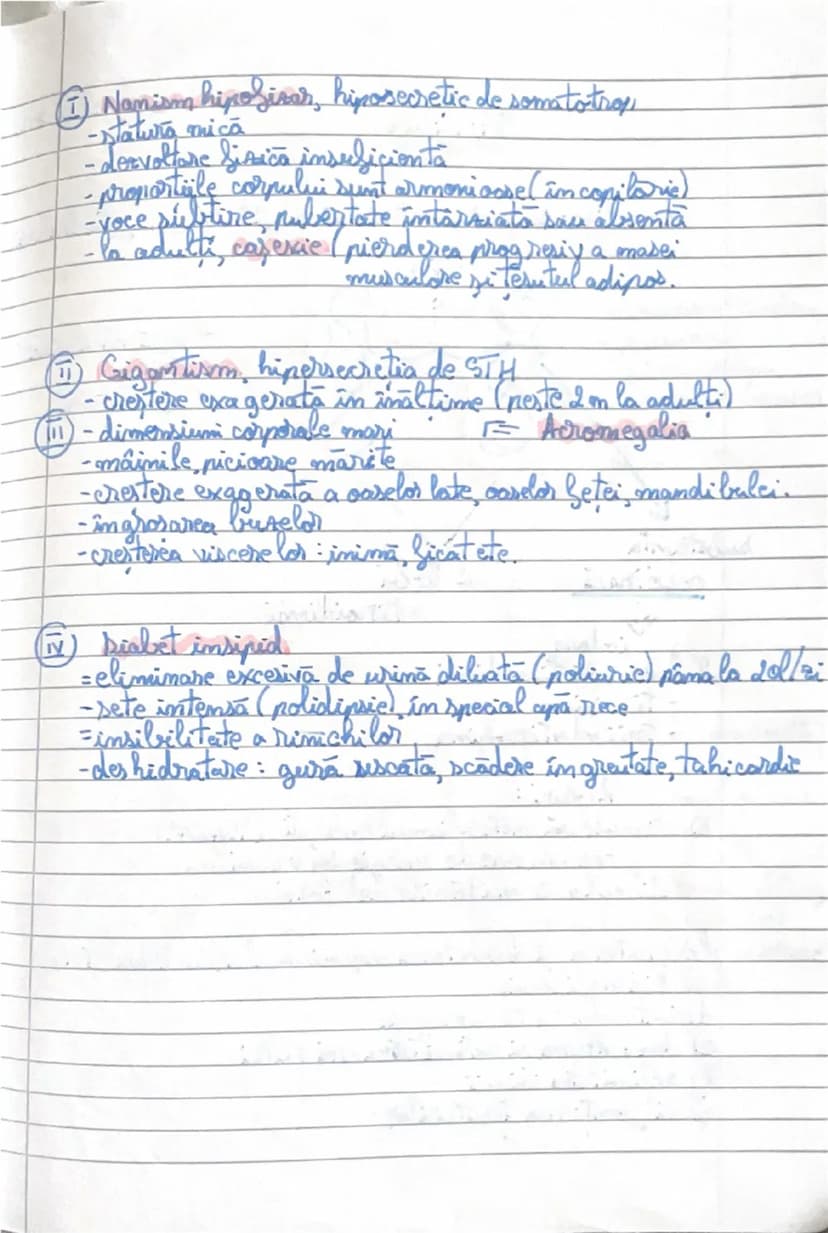 I Nanism hipofizar, hiposecretie de somatotrop
-statură mică
-dezvoltare fizică insuficientă
-proporțiile corpului sunt armonioase (în copilărie)
-voce subțire, pubertate întârziată sau absentă
-la adulți, casexie (pierderea progresiv a masei
musculare și țesutul adipos.
II Gigantism, hipersecreția de STH
- creștere exagerată în înălțime (peste 2m la adulți)
III - dimensiuni corporale mari = Acromegalia
-mâinile, picioare mărite
-crestere exagerată a oaselor late, oaselor feței, mandibulei.
-îngrosarea buzelor
-creșterea viscerelor: inimă, ficat etc.
IV Diabet insipid
=eliminare excesivă de urină diluată (poliurie) pâma la 20l/zi
-sete intensă (polidipsie), în special apă rece
= a rinichilor
-deshidratare: gură uscată, scădere în greutate, tahicardie